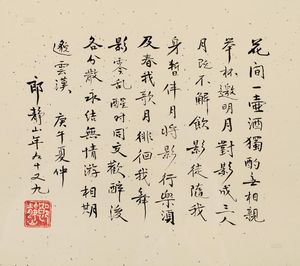 花間一壺酒獨酌無相親
舉杯邀明月對影成三人
月既不解飲影徒隨我
身暫伴月將影行樂須
及春我歌月徘徊我舞
影零亂醒時同交歡醉後
各分散永結無情游相期
邈雲漢 庚午夏仲
郎靜山年九十又九